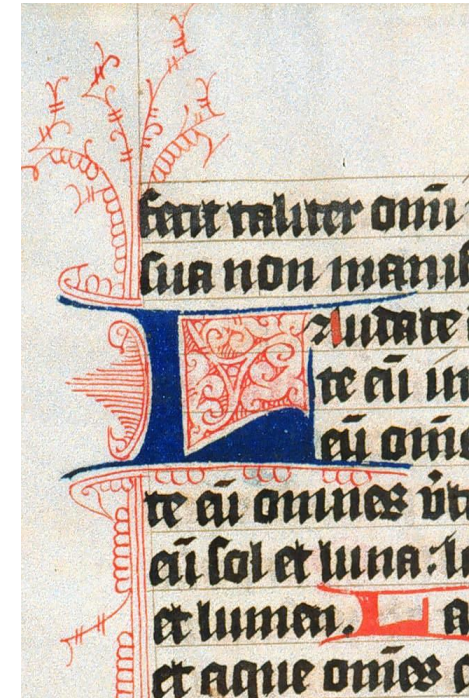 fecit taliter omī
sua non manif
Laudate
te eū in
eū om̄e
te eū omnes v̄t
eū sol et luna: l
et lumen. La
et aque om̄es